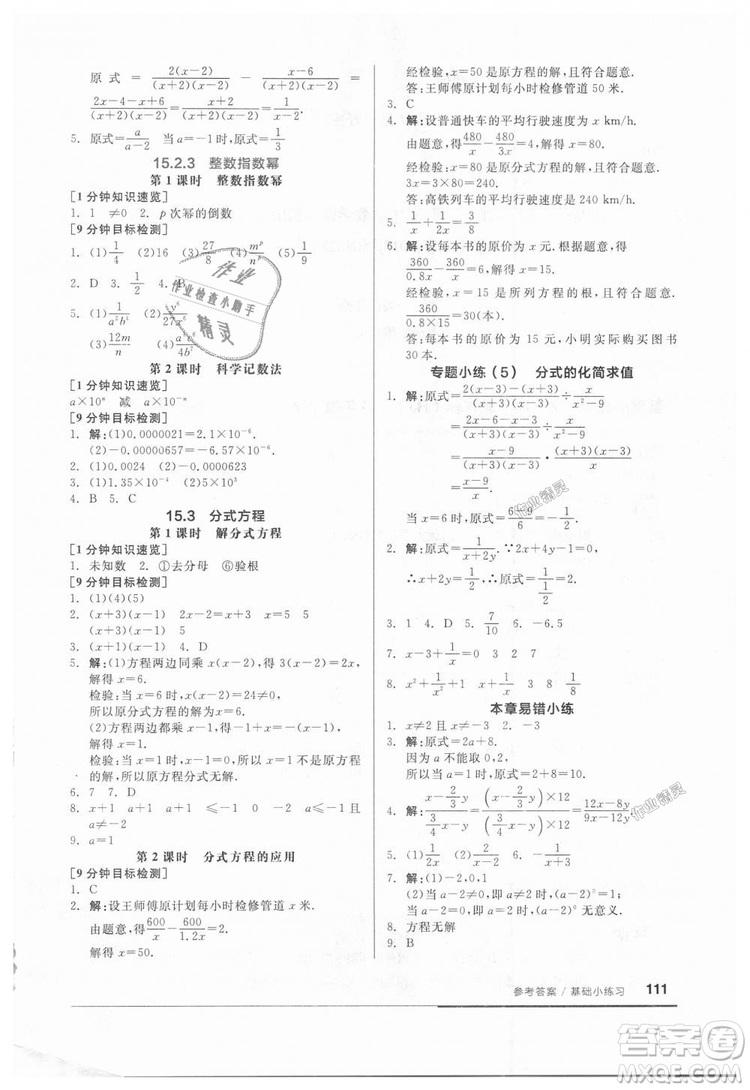 原式=2(x-2)/(x+2)(x-2) - (x-6)/(x+2)(x-2) =
(2x-4-x+6)/(x+2)(x-2) = (x+2)/(x+2)(x-2) = 1/(x-2).
5. 原式=a/(a-2) 当a=-1时,原式=1/3
15.2.3 整数指数幂
第1课时 整数指数幂
[1分钟知识速览]
1. 1 ≠0 2. p次幂的倒数
[9分钟目标检测]
1. (1)1/4 (2)16 (3)27/8 (4)m^p/n^p
2. D 3. 1/2 4.
5. (1)1/(a²b⁴) (2)
(3)12m/n (4)
第2课时 科学记数法
[1分钟知识速览]
a×10ⁿ 减 a×10⁻ⁿ
[9分钟目标检测]
1. 解:(1)0.0000021=2.1×10⁻⁶.
(2)-0.00000657=-6.57×10⁻⁶.
2. (1)0.0024 (2)-0.0000623
3. 9.35×10⁻⁴
4. B 5. C
15.3 分式方程
第1课时 解分式方程
[1分钟知识速览]
1. 未知数 2. ①去分母 ⑥验根
[9分钟目标检测]
1. (1)(4)(5)
2. (x+3)(x-1) 2x-2=x+3 5
(x+3)(x-1) 5
3. (x+1)(x-1) 4. D
5. 解:(1)方程两边同乘x(x-2),得3(x-2)=2x,
解得x=6.
检验:当x=6时,x(x-2)≠0,
所以原分式方程的解为x=6.
(2)方程两边都乘(x-2),得x-1=1,
解得x=2.
检验:当x=2时,x-2=0,
所以原方程分式无解.
6. 7 7. D
8. x+1 a+1 a+1 ≤-1 0 ≤-1且
a≠-2
第2课时 分式方程的应用
[9分钟目标检测]
1. C
2. 解:设王师傅原计划每小时检修管道x米.
由题意,得600/x-600/1.2x=2.
解得x=50.
经检验,x=50是原方程的解,且符合题意.
答:王师傅原计划每小时检修管道50米.
3. C
4. 解:设普通快车的平均行驶速度为x km/h.
由题意得480/x-480/3x=4,解得x=80.
3x=3×80=240.
答:高铁列车的平均行驶速度是240 km/h.
5. 1/x+1/2x=1/2
6. 解:设每本书的原价为x元.根据题意,得
360/0.8x-360/x=6,解得x=15.
经检验,x=15是所列方程的解.
360/(0.8×15)=30(本).
答:每本书的原价为15元,小明实际购买图书
30本.
专题小练(5) 分式的化简求值
1. 解:原式=[2(x-3)-(x+3)]/(x+3)(x-3)÷x/(x²-9)
=(2x-6-x-3)/(x+3)(x-3)÷x/(x²-9)
=(x-9)/(x+3)(x-3)·(x+3)(x-3)/x
=(x-9)/x.
当x=6时,原式=(6-9)/6=-1/2.
2. 解:原式=1/(x+2y).∵2x+4y-1=0,
∴x+2y=1/2,∴原式=1/(1/2)=2.
3. 1 4. D 5. 7/10 6. -6.5
7. x-3+1/x=0 3 2 7
8. x²+x+1/x 1/x 7 1/8
本章易错小练
1. x≠2且x≠-3 2. -3
3. 解:原式=2a+8.
因为a不能取0,2,
所以当a=1时,原式=10.
4. 解:(x-2/3y)/(3/4x-y)=(x-2/3y)×12/(3/4x-y)×12=(12x-8y)/(9x-12y).
5. (1)1/2 (2)-1/2 6. -x²
7. 解:(1)-2,0,1
(2)当a=2时,(a-2)⁰=0⁰,没有意义,所以
当a=2时,(a-2)⁰无意义.
8. 方程无解
9. B
参考答案 / 基础小练习 111
作业
作业检查小助手
精灵
作业精灵
作业精灵
答案圈
MXQE.COM